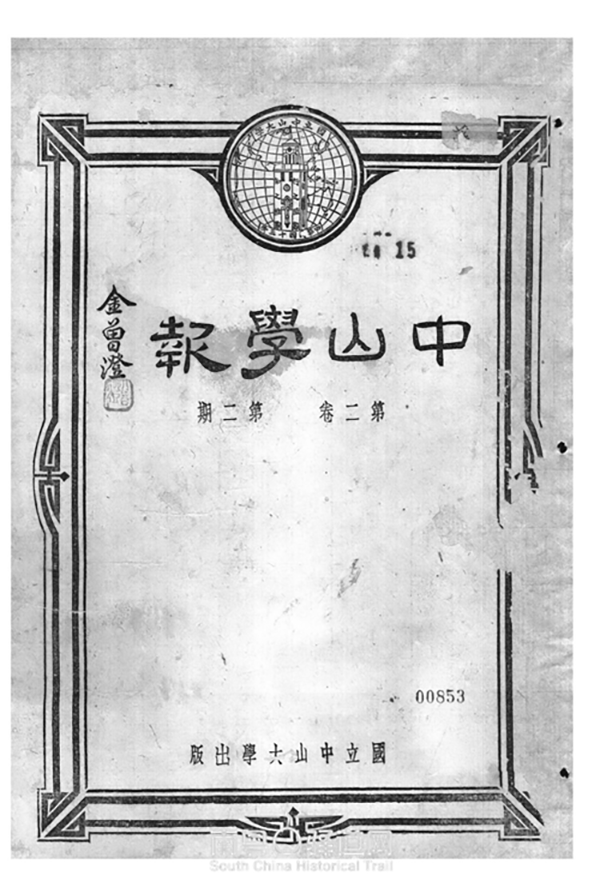 國立中山大學
15
中山學報
金曾澄
第二卷 第二期
00853
國立中山大學出版
South China Historical Trail